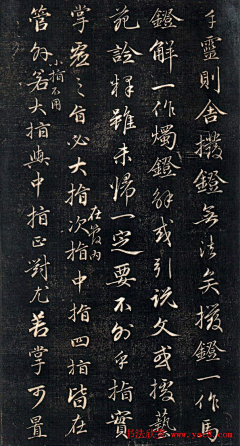 手靈則舍撥鐙無法矣撥鐙一作馬
鐙解一作燭鐙解或引說文或援藝
苑詮釋雖未歸一定要不外手指實
掌虛之旨必大指次指中指四指皆在
在管內
管外若大指與中指正對尤若掌可置
小指不用